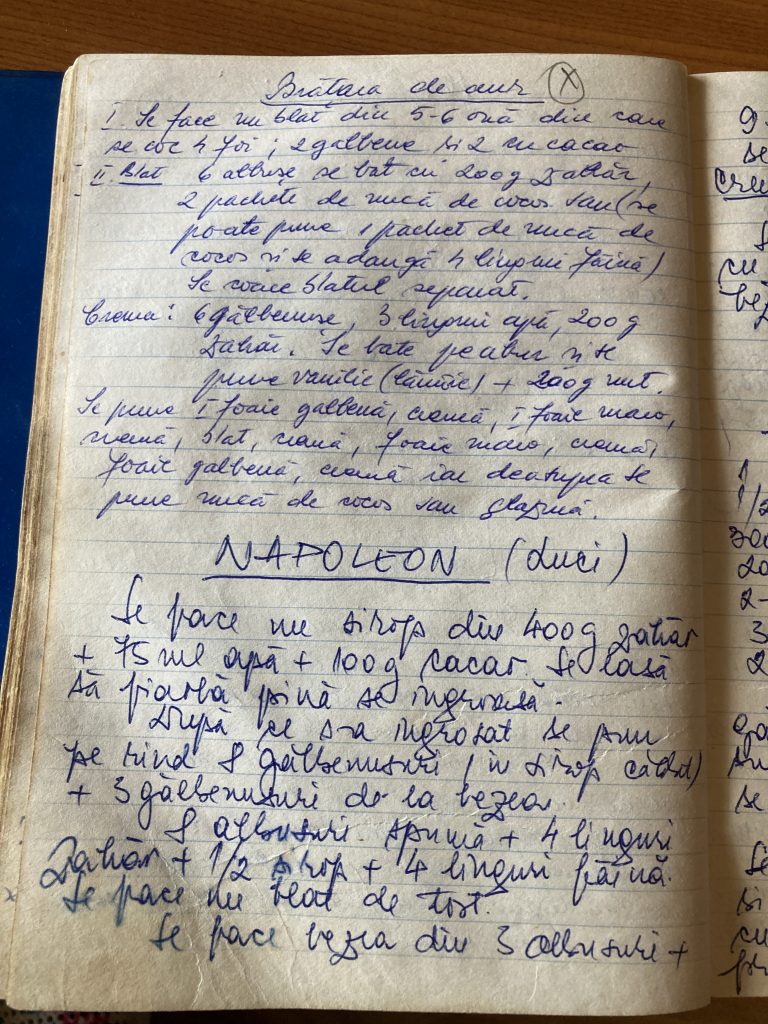 Brățara de aur X
I. Se face un blat din 5-6 ouă din care
se coc 4 foi; 2 galbene și 2 cu cacao
II. Blat 6 albușe se bat cu 200g zahăr,
2 pachete de nucă de cocos sau (se
poate pune 1 pachet de nucă de
cocos și se adaugă 4 linguri făină)
Se coace blatul separat.
Crema: 6 gălbenușe, 3 linguri apă, 200 g
zahăr. Se bate pe abur și se
pune vanilie (lămâie) + 200g unt.
Se pune I foaie galbenă, cremă, I foaie maro,
cremă, blat, cremă, foaie maro, cremă,
foaie galbenă, cremă iar deasupra se
pune nucă de cocos sau glazură.
NAPOLEON (Luci)
Se face un sirop din 400g zahăr
+ 75 ml apă + 100g cacao. Se lasă
să fiarbă pînă se îngroașă.
După ce s-a îngroșat se pun
pe rînd 8 gălbenușuri (în sirop căldut)
+ 3 gălbenușuri de la bezea.
8 albușuri spumă + 4 linguri
zahăr + 1/2 sirop + 4 linguri făină.
Se face un blat de tort.
Se face bezea din 3 albușuri +
9
se
cu
1
1/2
300
20
2-
3
2
se
Se
și
cu